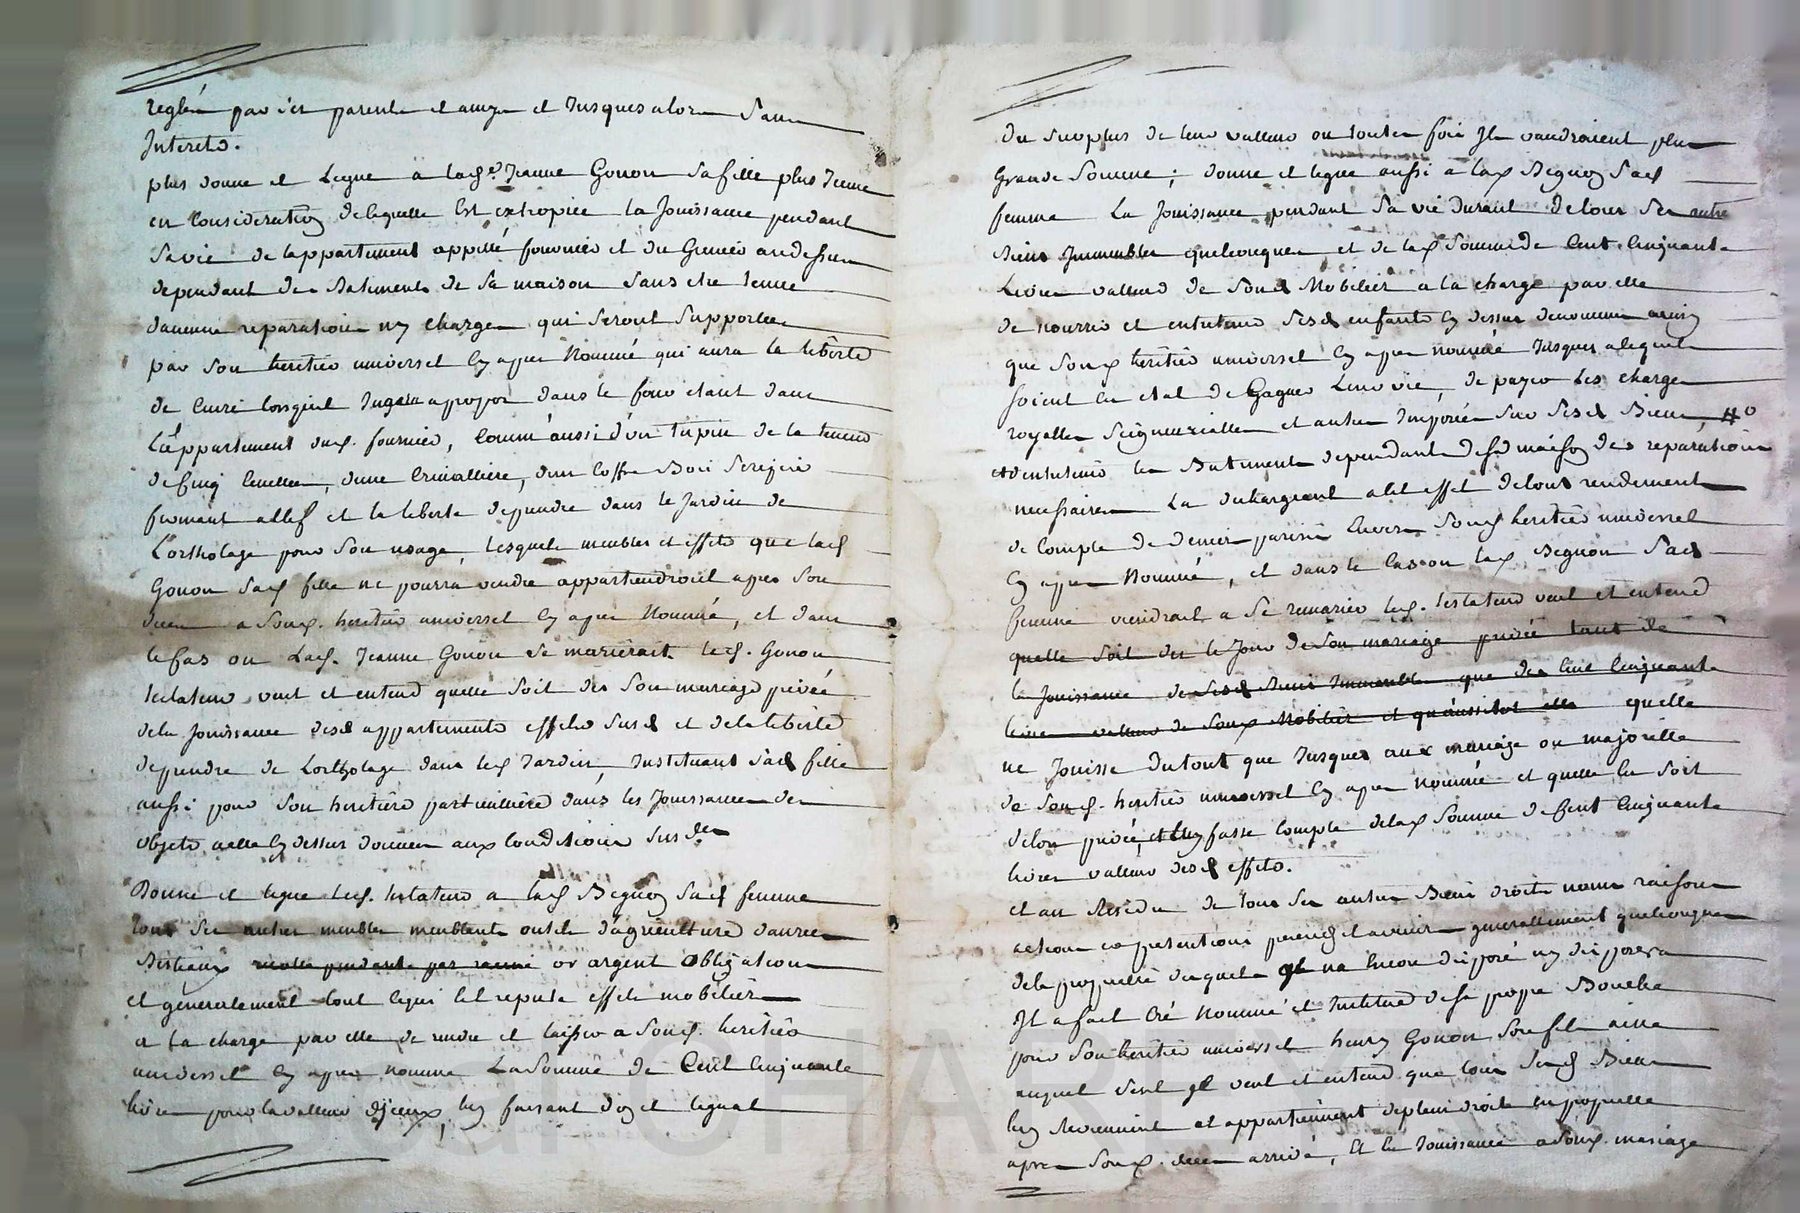 reglés par ses parents et amys et Jusques alors Sans
Interets.
plus donne et Legue a lad.e Jeanne Gonon sa fille plus Jeune
en Consideration de laquelle Est extropiée la Jouissance pendant
sa vie de lappartement appellé fournier et du Grenier au dessus
dependant des Batiments de sa maison sans etre tenue
daucune reparations ny charges qui seront Supportées
par son heritier universel Cy apres Nommé qui aura la liberté
de Cuire lorsquil Jugera apropos dans le four etant dans
Lappartement dud. fournier, Comm'aussi d'un tupin de la teneur
de Cinq Cuillees, dune Crimalliere, dun Coffre Bois Serizier
fermant a clef et la liberté de prendre dans le Jardin de
Lortholage pour Son usage, lesquels meubles et effets que lad
Gonon Sad fille ne pourra vendre appartiendront apres Son
deces a Sond. heritier universel Cy apres Nommé, et dans
le Cas ou Lad. Jeanne Gonon Se marierait led. Gonon
testateur veut et entend quelle Soit des Son mariage privée
de la Jouissance desd appartements effets Susd et de la liberté
de prendre de Lortholage dans led Jardin, Instituant Sad fille
aussi pour Son heritiere particulliere dans les Jouissances des
objets a elle Cy dessus donnés aux Conditions Susdes
Donne et legue led. testateur a lad Begnon Sad femme
tous Ses autres meubles meublants outils d'agriculture danrees
Bestiaux pendants par racine or argent obligations
et generalement tout cequi Est reputé effets mobiliers
a la charge par elle de rendre et laisser a Sond. heritier
universel Cy apres nommé La Somme de Cent Cinquante
livres pour la valleur diceux, luy faisant don et legual
du Surplus de leur valleur ou toutes fois Ils vaudraient plus
Grande Somme; donne et legue aussi a lad Begnon Sad
femme La Jouissance pendant Sa vie durant de tous Ses autres
Biens Immeubles quelconques et de lad Somme de Cent Cinquante
Livres valleur de Sond Mobilier a la charge par elle
de nourrir et entretenir Sesd enfants Cy dessus denommés ainsy
que Sond heritier universel Cy apres nommé Jusques a lequels
soient en etat de Gagner Leur vie, de payer Les charges
royalles Seigneurialles et autres Imposées Sur Sesd Biens #o
et dentretenir les Batiments dependants de Sa maison des reparations
necessaires La dechargeant a cet effet de tout rendement
de Compte de denier parisis Envers Sond heritier universel
Cy apres Nommé, et dans le Cas ou lad Begnon Sad
femme viendrait a Se remarier led. testateur veut et entend
quelle Soit des le Jour de Son mariage privée tant de
la Jouissance de Sesd Biens Immeubles que des Cent Cinquante
livres valleur de Sond Mobilier et qu'aussitot elle quelle
ne Jouisse du tout que Jusques aux mariage ou majorité
de Sond. heritier universel Cy apres nommé et quelle En Soit
delors privée, et luy fasse Compte de lad Somme de Cent Cinquante
livres valleur desd effets.
et au Residu de tous Ses autres Biens droits noms raisons
actions et pretentions presents et avenir generallement quelconques
de la proprieté desquels Il na Encore disposé ny disposera
Il a fait Créé Nommé et Institué de sa propre Bouche
pour Son heritier universel henry Gonon Son fils ainé
auquel Seul Il veut et entend que tous Sesd Biens
luy Reviennent et appartiennent de plein droit En proprieté
apres Sond. deces arrivé, et En Jouissance a Sond. mariage